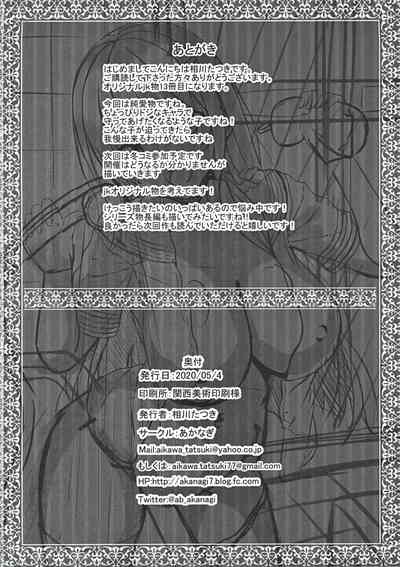 あとがき
はじめましてこんにちは相川たつきです。
ご購読して下さった方々ありがとうございます。
オリジナルjk物13冊目になります。
今回は純愛物ですね。
ちょっぴりドジなキャラで
守ってあげたくなるような子ですね!
こんな子が迫ってきたら
我慢出来るわけがないですね
次回は冬コミ参加予定です
開催はどうなるか分かりませんが
描いていきます
jkオリジナル物を考えてます!
けっこう描きたいのいっぱいあるので悩み中です!
シリーズ物長編も描いてみたいですね!!
良かったら次回作も読んでいただけると嬉しいです!
奥付
発行日:2020/05/4
印刷所:関西美術印刷様
発行者:相川たつき
サークル:あかなぎ
Mail:aikawa_tatsuki@yahoo.co.jp
もしくは:aikawa.tatsuki77@gmail.com
HP:http://akanagi7.blog.fc.com
Twitter:@ab_akanagi